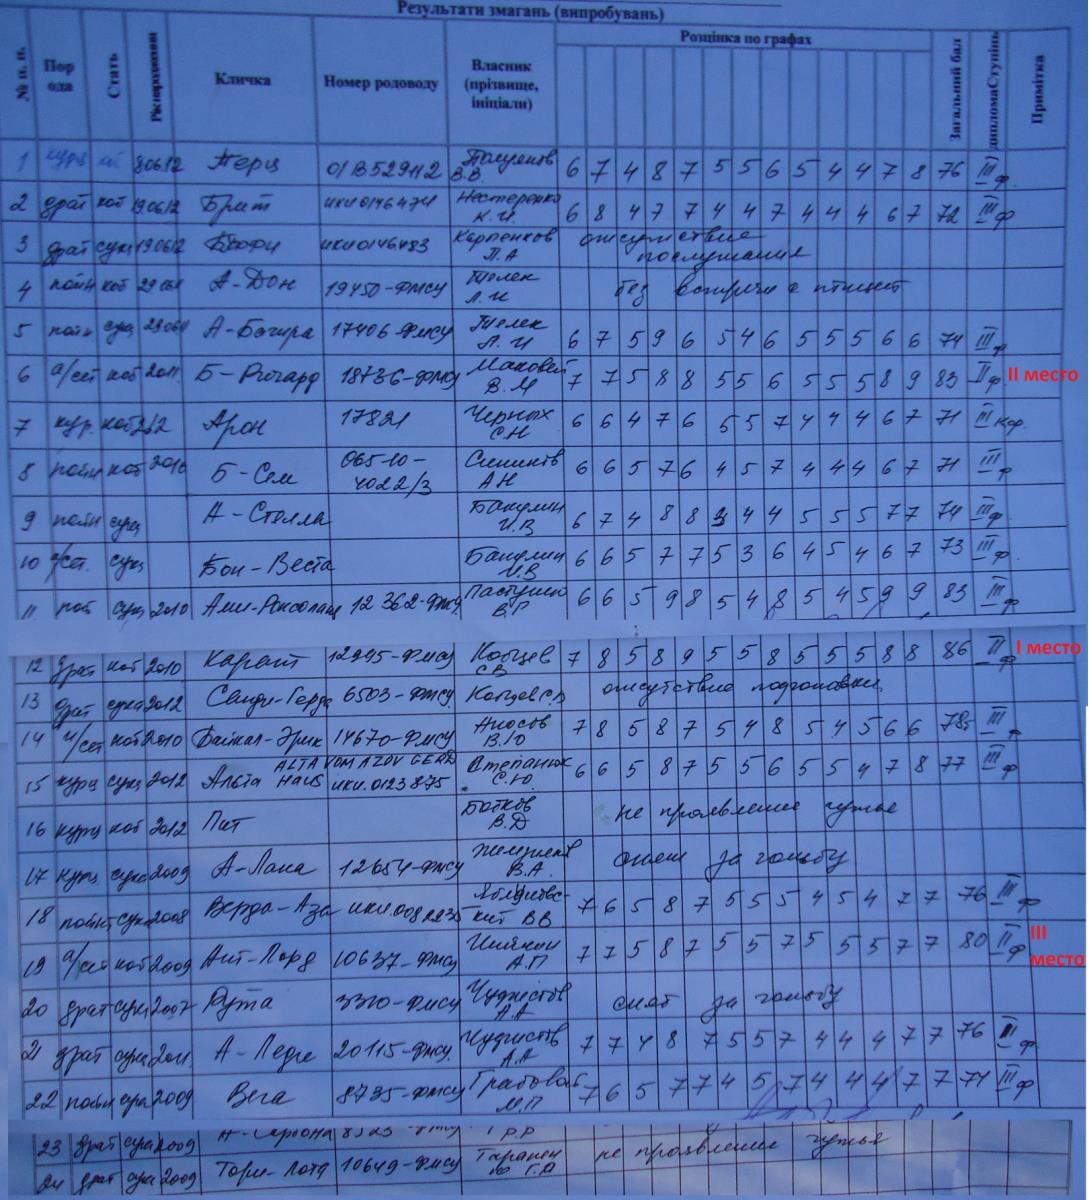 Результати змагань (випробувань)
№ п. п. Порода Стать Рік народження Кличка Номер родоводу Власник (прізвище, ініціали) Розцінка по графах Загальний бал Ступінь диплома Примітка
1 курц 8.06.12 Перц 01В529112 В.В. 6 7 4 8 7 5 5 6 5 4 4 7 8 76 III ф.
2 драт коб 19.06.12 Брит ики0146474 Нестеренко К.И. 6 8 4 7 7 4 4 7 4 4 4 6 7 72 III ф
3 драт сука 19.06.12 ики0146483 Карпенков П.А отсутствие послушания
4 пойн коб А-Дон 19450-ФМСУ Телек Л.И без встречи с птицей
5 пойн. сука А-Багира 17406-ФМСУ Телек Л.И 6 7 5 9 6 5 4 6 5 5 5 6 6 74 III ф
6 а/сет коб 2011. Б-Ричард 18736-ФМСУ Маковей В.М 7 7 5 8 8 5 5 6 5 5 5 8 9 83 II ф. II место
7 кур. коб 2012 Арон 17821 Черных С.Н 6 6 4 7 6 5 5 7 4 4 4 6 7 71 III кф.
8 пойн коб 2010 Б-Сем 06510-4022/3 А.Н 6 6 5 7 6 4 5 7 4 4 4 6 7 71 III ф
9 пойн сука А-Стелла Бакулин И.В 6 7 4 8 8 3 4 4 5 5 5 7 7 74 III ф.
10 /сет. сука Бон-Веста Бакулин И.В 6 6 5 7 7 5 3 6 4 5 4 6 7 73 III ф.
11 пой сука 2010 12362-ФМСУ В.Г 6 6 5 9 8 5 4 8 5 4 5 9 9 83 III ф.
12 драт коб 2010 Карат 12995-ФМСУ Кобцев С.В 7 8 5 8 9 5 5 8 5 5 5 8 8 86 II ф I место
13 драт сука 2012 Сенди-Герда 6503-ФМСУ Кобцев С.В отсутствие подготовки
14 /сет коб 2010 Байкал-Эрик 14670-ФМСУ Аносов В.Ю 7 8 5 8 7 5 4 8 5 4 5 6 6 78 III ф
15 курц сука 2012 Альта ALTA VOM AZOV GERD HAUS ики.0123875 Степанюк С.Ю. 6 6 5 8 7 5 5 6 5 5 4 7 8 77 III ф
16 курц коб 2012 Пит Ботков В.Д не проявление чутья
17 курц сука 2009 А-Лана 12654-ФМСУ В.А. снят за гоньбу
18 пойнт сука 2008 Верда-Аза В.В. 7 6 5 8 7 5 5 5 4 5 4 7 7 76 III ф
19 а/сет коб 2009 Лорд 10637-ФМСУ А.П 7 7 5 8 7 5 5 7 5 5 5 7 7 80 II ф III место
20 драт сука 2007 Рута 3310-ФМСУ Чудистов А.А снят за гоньбу
21 драт сука 2011. А-Леди 20115-ФМСУ. Чудистов А.А 7 7 4 8 7 5 5 7 4 4 4 7 7 76 III ф.
22 пойн сука 2009 Вега 8735-ФМСУ Грабовой М.П 7 6 5 7 7 4 5 7 4 4 4 7 7 74 III ф
23 драт сука 2009
24 драт сука 2009 Тори-Лота 10649-ФМСУ Таранен Г.А не проявление чутья